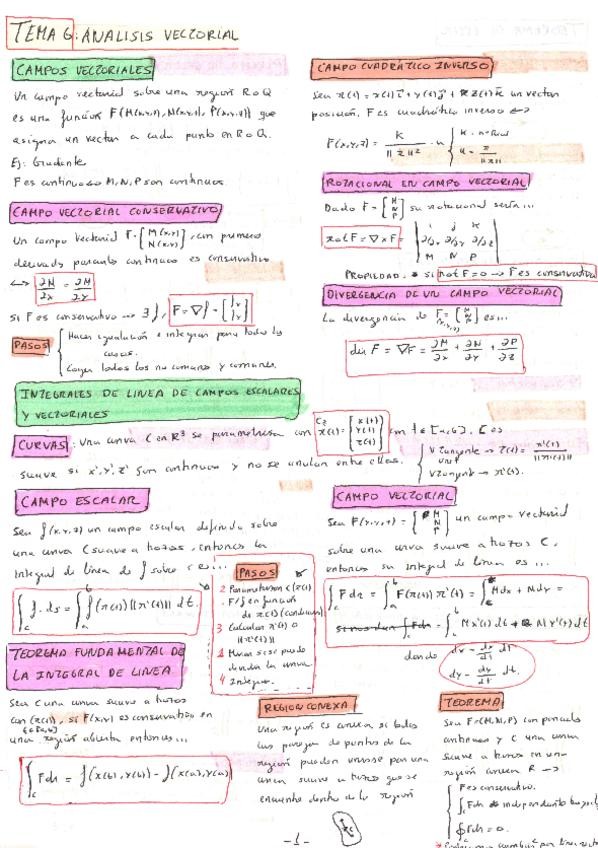 TEMA 6: ANALISIS VECTORIAL
CAMPOS VECTORIALES
Un campo vectorial sobre una región R o Q
es una función F(M(x,y), N(x,y), P(x,y,z)) que
asigna un vector a cada punto en R o Q.
Ej: Gradiente
F es continuo ↔ M, N, P son continuas.
CAMPO VECTORIAL CONSERVATIVO
Un campo vectorial F = [M(x,y) N(x,y)], con primeras
derivadas parciales continuas es conservativo
Si F es conservativo → ∃ f, F = ∇f = [fx fy]
PASOS
Hacer igualación e integrar para todos los
casos.
Coger todos los no comunes y comunes.
CAMPO CUADRÁTICO INVERSO
Sea r(t) = x(t) i + y(t) j + z(t) k un vector
posición. F es cuadrático inverso ↔
ROTACIONAL EN CAMPO VECTORIAL
Dado F = [M N P] su rotacional sería...
rot F = ∇ x F = | i j k ∂/∂x ∂/∂y ∂/∂z M N P |
PROPIEDAD. * Si rot F = 0 → F es conservativo
DIVERGENCIA DE UN CAMPO VECTORIAL
La divergencia de F(x,y,z) = [M N P] es...
div F = ∇F = ∂M/∂x + ∂N/∂y + ∂P/∂z
INTEGRALES DE LINEA DE CAMPOS ESCALARES
Y VECTORIALES
CURVAS: Una curva C en R³ se parametriza con r(t) = [x(t) y(t) z(t)] con t ∈ [a,b]. C es
suave si x', y', z' son continuas y no se anulan entre ellas.
V Tangente unit → T(t) = r'(t)/||r'(t)||
V Tangente → r'(t).
CAMPO ESCALAR
Sea f(x,y,z) un campo escalar definido sobre
una curva C suave a trozos, entonces la
integral de línea de f sobre C es...
∫c f. ds = ∫ab f(r(t)) ||r'(t)|| dt.
PASOS
Parametrizar C (r(t))
F/f en función
de r(t) (condiciones)
3 Calcular r'(t) o
||r'(t)||
Mirar si se puede
dividir la curva
4 Integrar.
CAMPO VECTORIAL
Sea F(x,y,z) = [M N P] un campo vectorial
sobre una curva suave a trozos C,
entonces su integral de línea es ...
∫c F dr = ∫ab F(r(t)) r'(t) = ∫c Mdx + Ndy =
= ∫c M x'(t) dt + N y'(t) dt
donde dx = dx/dt dt.
dy = dy/dt dt.
TEOREMA FUNDAMENTAL DE
LA INTEGRAL DE LINEA
Sea C una curva suave a trozos
con (r(t)), si F(x,y) es conservativo en
t ∈ [a,b]
una región abierta entonces...
∫c Fdr = f(x(b), y(b)) - f(x(a), y(a))
REGION CONEXA
Una región es conexa si todos
los parejas de puntos de la
región pueden unirse por una
curva suave a trozos que se
encuentre dentro de la región
TEOREMA
Sea F=(M,N,P) con parciales
continuas y C una curva
suave a trozos en una
región conexa R →
F es conservativo.
∮ F dr = 0.
-1-